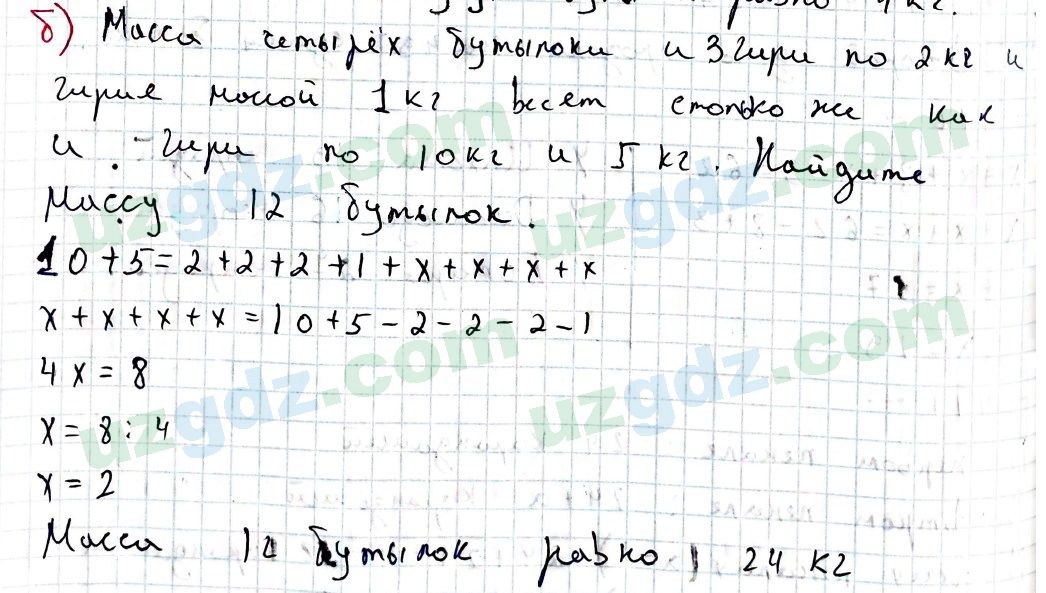 б) Масса четырёх бутылоки и 3 гири по 2 кг и
гирие массой 1 кг весет столько же как
и гири по 10 кг и 5 кг. Найдите
Массу 12 бутылок.
10+5=2+2+2+1+x+x+x+x
x+x+x+x=10+5-2-2-2-1
4x=8
x=8:4
x=2
Масса 12 бутылок равно 24 кг
uzgdz.com
uzgdz.com
uzgdz.com
uzgdz.com